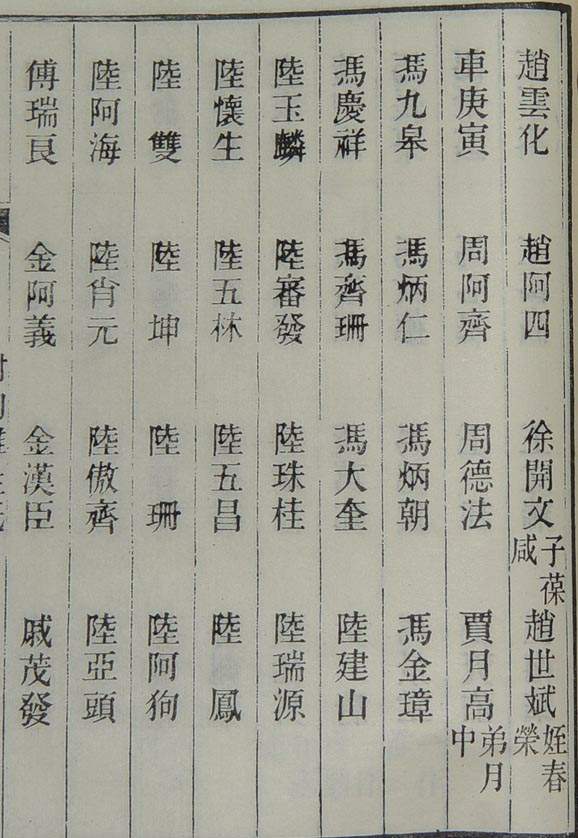 趙雲化 趙阿四 徐開文子葆咸 趙世斌姪春榮
車庚寅 周阿齊 周德法 賈月高弟月中
馮九皋 馮炳仁 馮炳朝 馮金璋
馮慶祥 馮齊珊 馮大奎 陸建山
陸玉麟 陸審發 陸珠桂 陸瑞源
陸懷生 陸五林 陸五昌 陸鳳
陸雙 陸坤 陸珊 陸阿狗
陸阿海 陸肯元 陸傲齊 陸亞頭
傅瑞良 金阿義 金漢臣 戚茂發